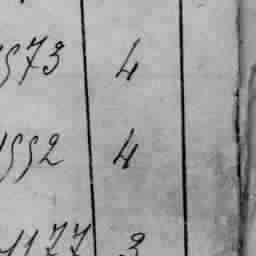 1573 4
1552 4
1177 3